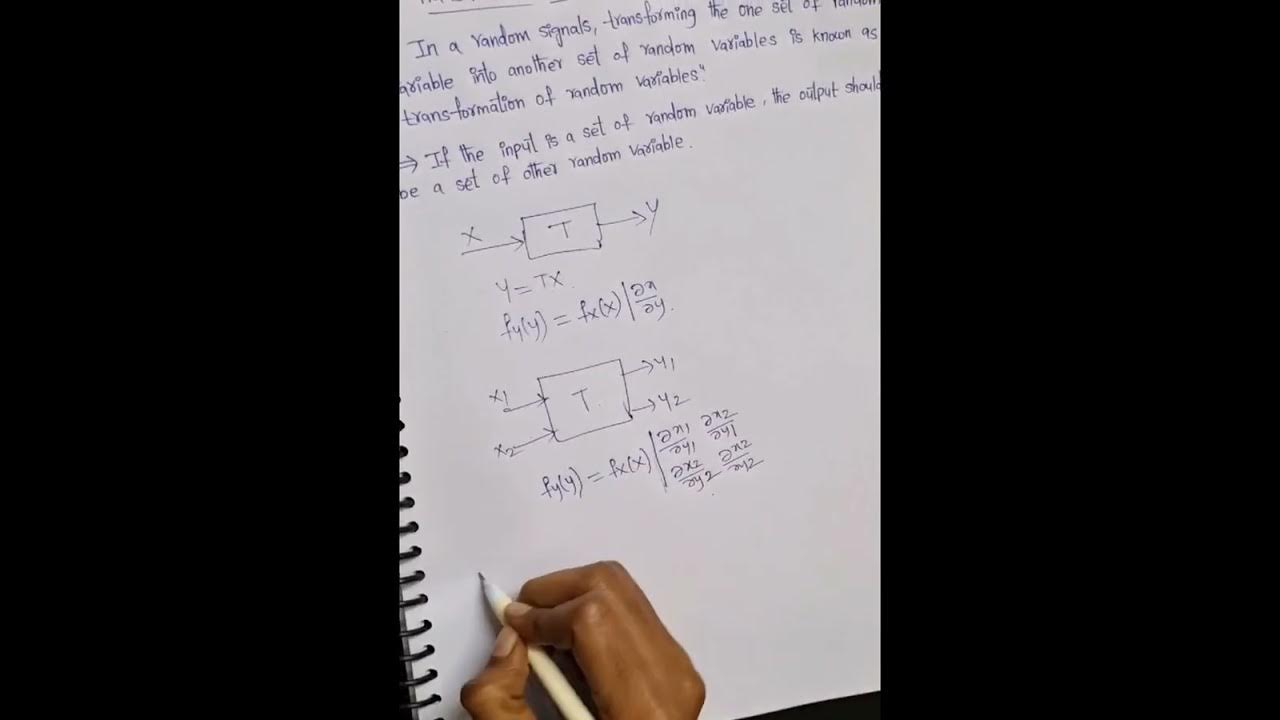 In a random signals, transforming the one set of random
ariable into another set of random variables is known as
transformation of random variables"
⇒ If the input is a set of random variable, the output should
be a set of other random variable.
X T Y
Y = TX
fy(y) = fx(x) |∂x/∂y
x1 T y1
x2 y2
fy(y) = fx(x) | ∂x1/∂y1 ∂x2/∂y1
∂x2/∂y2 ∂x2/∂y2